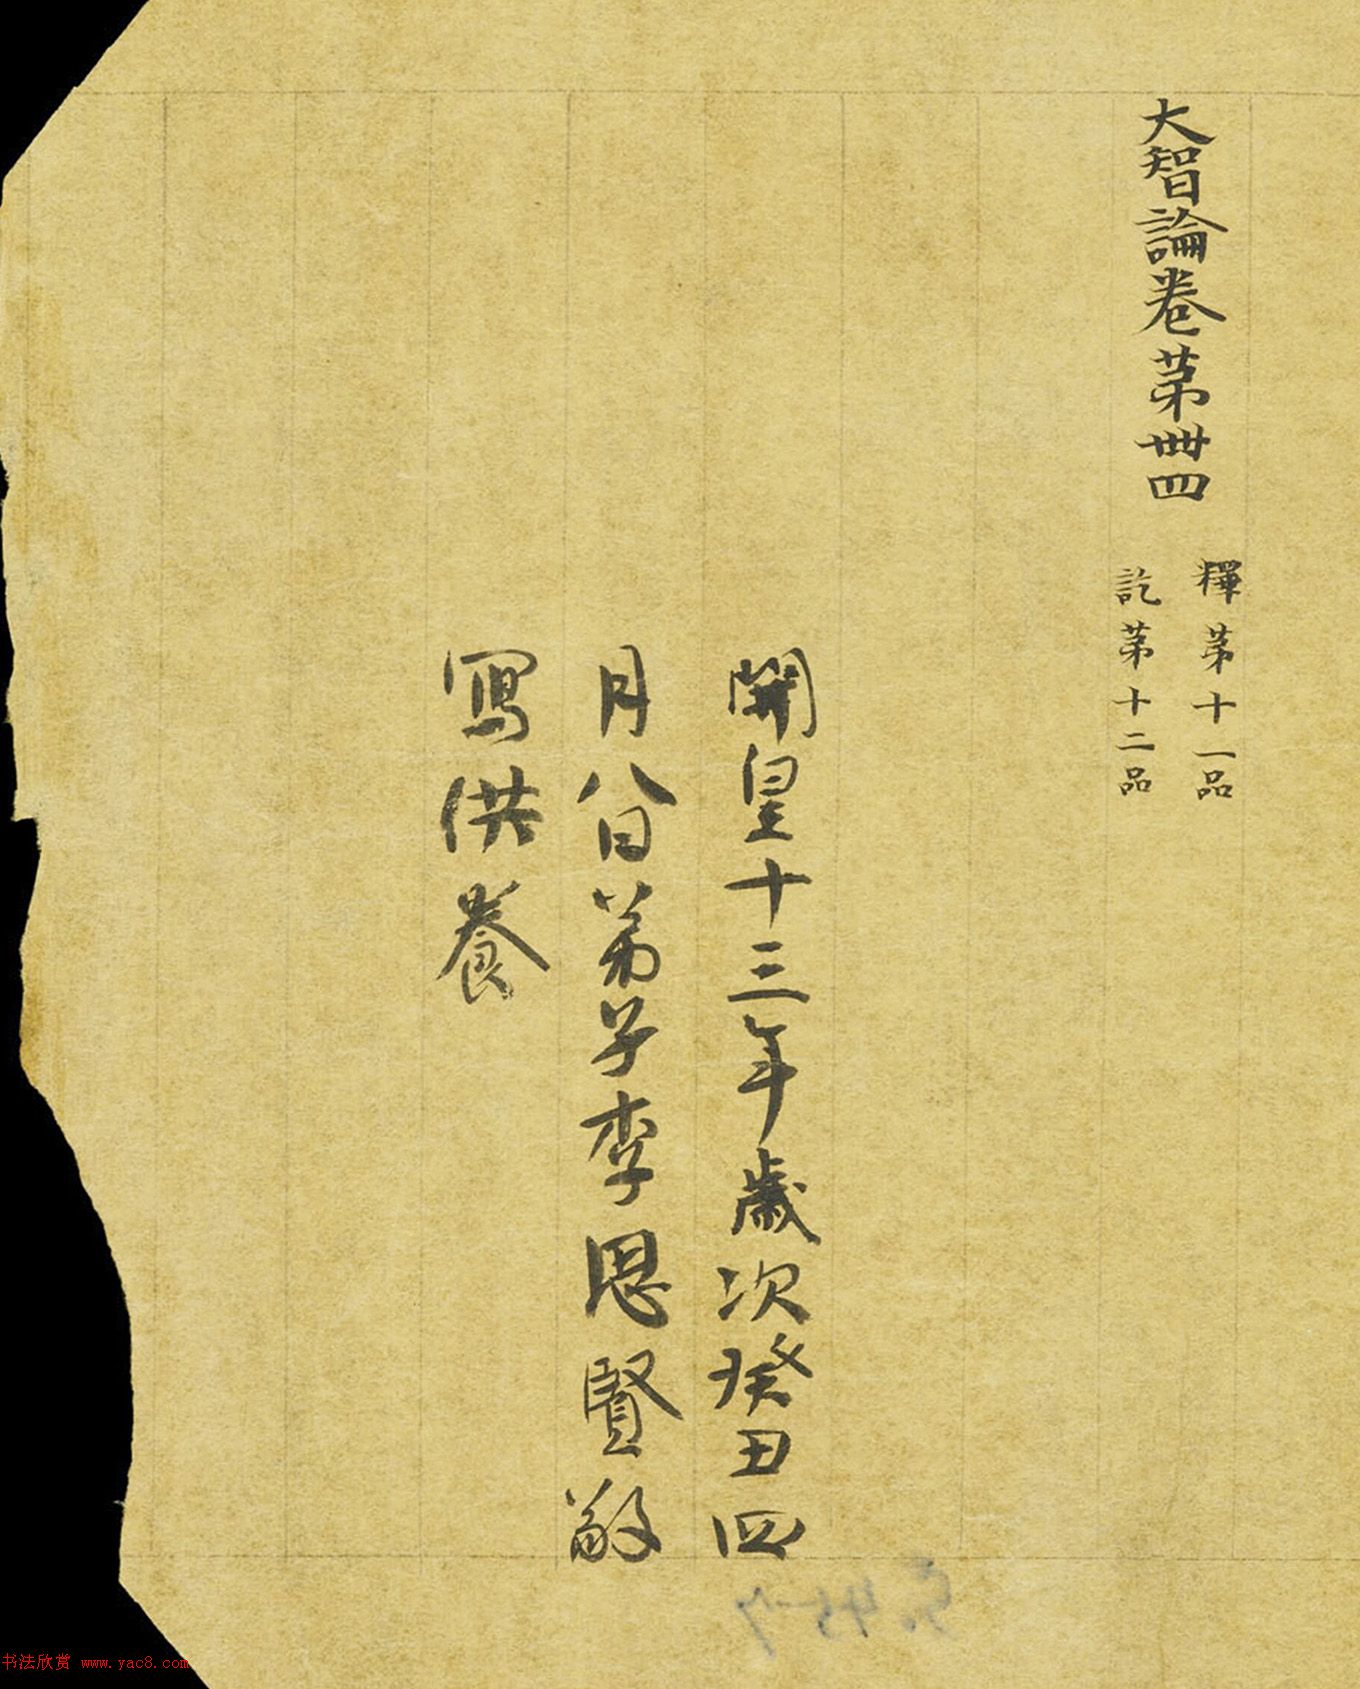 大智論卷苐卌四
釋苐十一品
訖苐十二品
開皇十三年歲次癸丑四
月八日弟子李思賢敬
寫供養
S.4967
书法欣赏 www.yac8.com